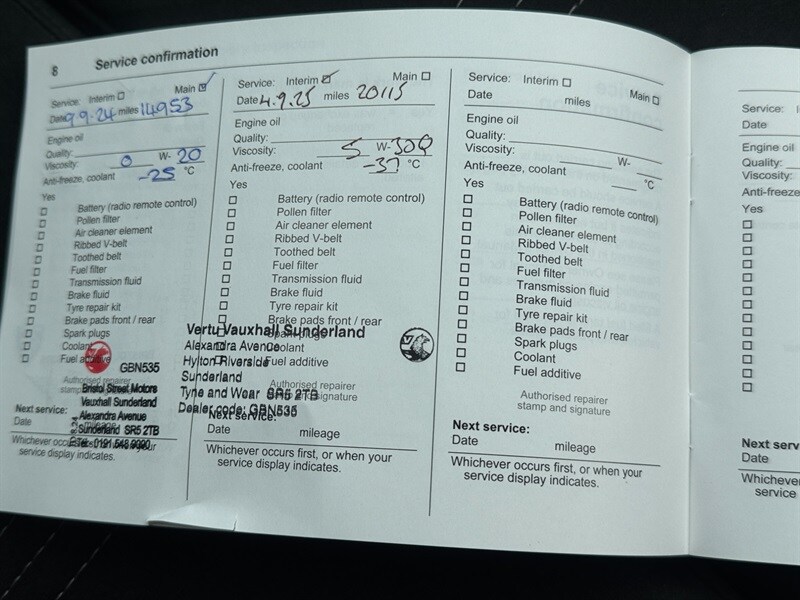 8 Service confirmation
Service: Interim Main
Date 9.9.24 miles 14953
Engine oil
Quality:
Viscosity: 0 W- 20
Anti-freeze, coolant -25 °C
Yes
Battery (radio remote control)
Pollen filter
Air cleaner element
Ribbed V-belt
Toothed belt
Fuel filter
Transmission fluid
Brake fluid
Tyre repair kit
Brake pads front / rear
Spark plugs
Coolant
Fuel additive
GBN535
Authorised repairer
stamp
Bristol Street Motors
Vauxhall Sunderland
Alexandra Avenue
Sunderland SR5 2TB
Tel: 0191 548 9090
Next service:
Date mileage
Whichever occurs first, or when your
service display indicates.
Service: Interim Main
Date 4.9.25 miles 20115
Engine oil
Quality:
Viscosity: 5 W-30
Anti-freeze, coolant -37 °C
Yes
Battery (radio remote control)
Pollen filter
Air cleaner element
Ribbed V-belt
Toothed belt
Fuel filter
Transmission fluid
Brake fluid
Tyre repair kit
Brake pads front / rear
Spark plugs
Coolant
Fuel additive
Vertu Vauxhall Sunderland
Alexandra Avenue
Hylton Riverside
Sunderland
Tyne and Wear SR5 2TB
Dealer code: GBN535
Authorised repairer
stamp and signature
Next service:
Date mileage
Whichever occurs first, or when your
service display indicates.
Service: Interim Main
Date miles
Engine oil
Quality:
Viscosity: W-
Anti-freeze, coolant °C
Yes
Battery (radio remote control)
Pollen filter
Air cleaner element
Ribbed V-belt
Toothed belt
Fuel filter
Transmission fluid
Brake fluid
Tyre repair kit
Brake pads front / rear
Spark plugs
Coolant
Fuel additive
Authorised repairer
stamp and signature
Next service:
Date mileage
Whichever occurs first, or when your
service display indicates.
Service:
Date
Engine oil
Quality:
Viscosity:
Anti-freeze
Yes
Next serv
Date
Whichever
service